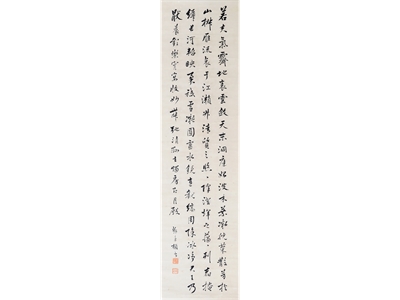 若夫氣霽地表雲斂天末洞庭始波木葉微脫菊散芳於
山椒雁流哀于江瀨升清質之悠悠降澄輝之藹藹列宿掩
縟長河韜映柔祇雪凝圓靈水鏡連觀霜縞周除冰淨君王乃
厭晨歡樂宵宴收妙舞弛清縣去燭房即月殿